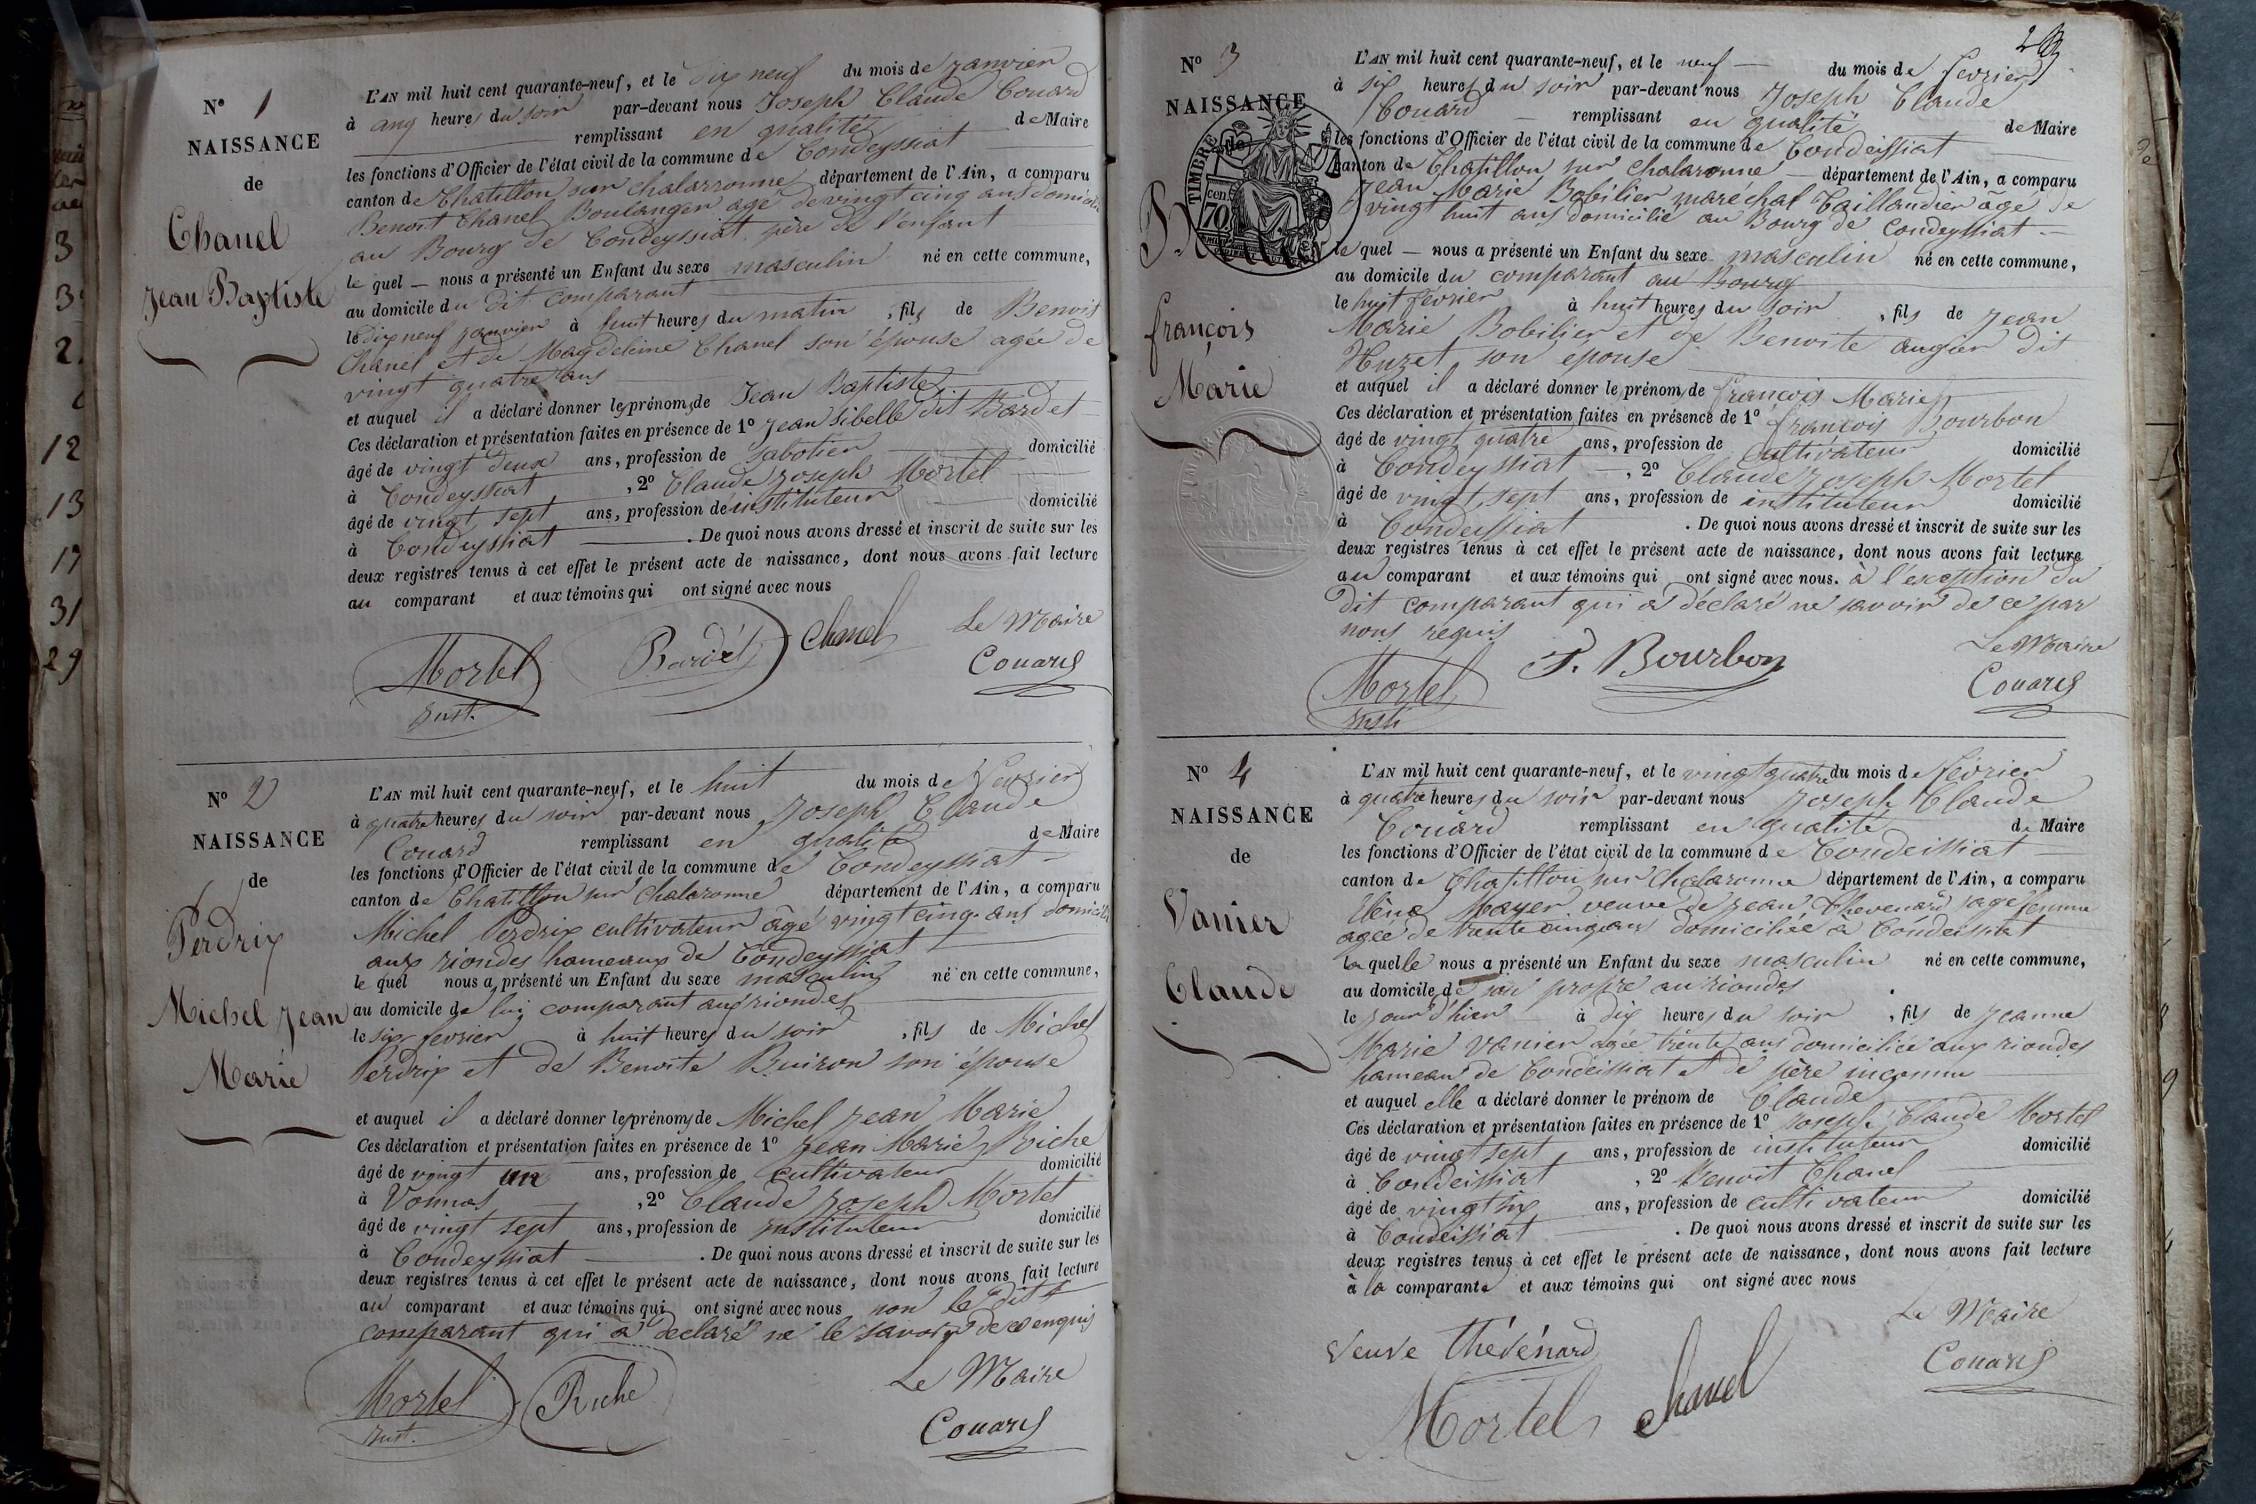 N° 1
NAISSANCE
de
Chanel
Jean Baptiste
L'AN mil huit cent quarante-neuf, et le dix neuf du mois de janvier
à cinq heures du soir par-devant nous Joseph Claude Couard
remplissant en qualité de Maire
les fonctions d'Officier de l'état civil de la commune de Condeyssiat
canton de Chatillon sur Chalaronne département de l'Ain, a comparu
Benoit Chanel Boulanger agé de vingt cinq ans domicilié
au Bourg de Condeyssiat père de l'enfant
le quel — nous a présenté un Enfant du sexe masculin né en cette commune,
au domicile du dit comparant
le dix neuf janvier à huit heures du matin, fils de Benoit
Chanel et de Magdeleine Chanel son épouse agée de
vingt quatre ans
et auquel il a déclaré donner les prénoms de Jean Baptiste
Ces déclaration et présentation faites en présence de 1° Jean Sibelle dit Bardet
âgé de vingt deux ans, profession de Sabotier domicilié
à Condeyssiat, 2° Claude Joseph Mortel
âgé de vingt sept ans, profession de instituteur domicilié
à Condeyssiat. De quoi nous avons dressé et inscrit de suite sur les
deux registres tenus à cet effet le présent acte de naissance, dont nous avons fait lecture
au comparant et aux témoins qui ont signé avec nous
Le Maire
Mortel Bardet Chanel Couard
Inst.
N° 2
NAISSANCE
de
Perdrix
Michel Jean
Marie
L'AN mil huit cent quarante-neuf, et le huit du mois de février
à quatre heures du soir par-devant nous Joseph Claude
Couard remplissant en qualité de Maire
les fonctions d'Officier de l'état civil de la commune de Condeyssiat
canton de Chatillon sur Chalaronne département de l'Ain, a comparu
Michel Perdrix cultivateur âgé vingt cinq ans domicilié
aux riondes hameaux de Condeyssiat
le quel nous a présenté un Enfant du sexe masculin né en cette commune,
au domicile de lui comparant aux riondes
le six fevrier à huit heures du soir, fils de Michel
Perdrix et de Benoite Buiron son épouse
et auquel il a déclaré donner les prénoms de Michel Jean Marie
Ces déclaration et présentation faites en présence de 1° Jean Marie Riche
âgé de vingt un ans, profession de cultivateur domicilié
à Vonnas, 2° Claude Joseph Mortel
âgé de vingt sept ans, profession de instituteur domicilié
à Condeyssiat. De quoi nous avons dressé et inscrit de suite sur les
deux registres tenus à cet effet le présent acte de naissance, dont nous avons fait lecture
au comparant et aux témoins qui ont signé avec nous non le dit
comparant qui a declaré ne le savoir de ce enquis
Le Maire
Mortel Riche Couard
Inst.
N° 3
NAISSANCE
TIMBRE
cen.
70
françois
Marie
L'AN mil huit cent quarante-neuf, et le neuf — du mois de fevrier
à six heures du soir par-devant nous Joseph Claude
Couard remplissant en qualité de Maire
les fonctions d'Officier de l'état civil de la commune de Condeissiat
canton de Chatillon sur Chalaronne département de l'Ain, a comparu
Jean Marie Bobilier maréchal Taillandier âgé de
vingt huit ans domicilié au Bourg de Condeyssiat
le quel — nous a présenté un Enfant du sexe masculin né en cette commune,
au domicile du comparant au Bourg
le huit fevrier à huit heures du soir, fils de Jean
Marie Bobilier et de Benoite augier dit
Huzet son épouse
et auquel il a déclaré donner les prénoms de françois Marie
Ces déclaration et présentation faites en présence de 1° françois Bourbon
âgé de vingt quatre ans, profession de Cultivateur domicilié
à Condeyssiat, 2° Claude Joseph Mortel
âgé de vingt sept ans, profession de instituteur domicilié
à Condeissiat. De quoi nous avons dressé et inscrit de suite sur les
deux registres tenus à cet effet le présent acte de naissance, dont nous avons fait lecture
au comparant et aux témoins qui ont signé avec nous. à l'exception du
dit comparant qui a déclaré ne savoir de ce par
nous requis
Le Maire
Mortel F. Bourbon Couard
Insti
N° 4
NAISSANCE
de
Vanier
Claude
L'AN mil huit cent quarante-neuf, et le vingt quatre du mois de février
à quatre heures du soir par-devant nous Joseph Claude
Couard remplissant en qualité de Maire
les fonctions d'Officier de l'état civil de la commune de Condeissiat
canton de Chatillon sur Chalaronne département de l'Ain, a comparu
Mayer veuve de Jean Thevenard sage femme
agée de trente cinq ans domiciliée à Condeissiat
la quelle nous a présenté un Enfant du sexe masculin né en cette commune,
au domicile de son propre au riondes
le jour d'hier à dix heures du soir, fils de Jeanne
Marie Vanier agée trente ans domiciliée aux riondes
hameau de Condeissiat et de père inconnu
et auquel elle a déclaré donner le prénom de Claude
Ces déclaration et présentation faites en présence de 1° Joseph Claude Mortel
âgé de vingt sept ans, profession de instituteur domicilié
à Condeissiat, 2° Benoit Chanel
âgé de vingt six ans, profession de cultivateur domicilié
à Condeissiat. De quoi nous avons dressé et inscrit de suite sur les
deux registres tenus à cet effet le présent acte de naissance, dont nous avons fait lecture
à la comparante et aux témoins qui ont signé avec nous
Le Maire
Veuve thévénard Couard
Mortel chanel
3
2
12
13
17
31
29